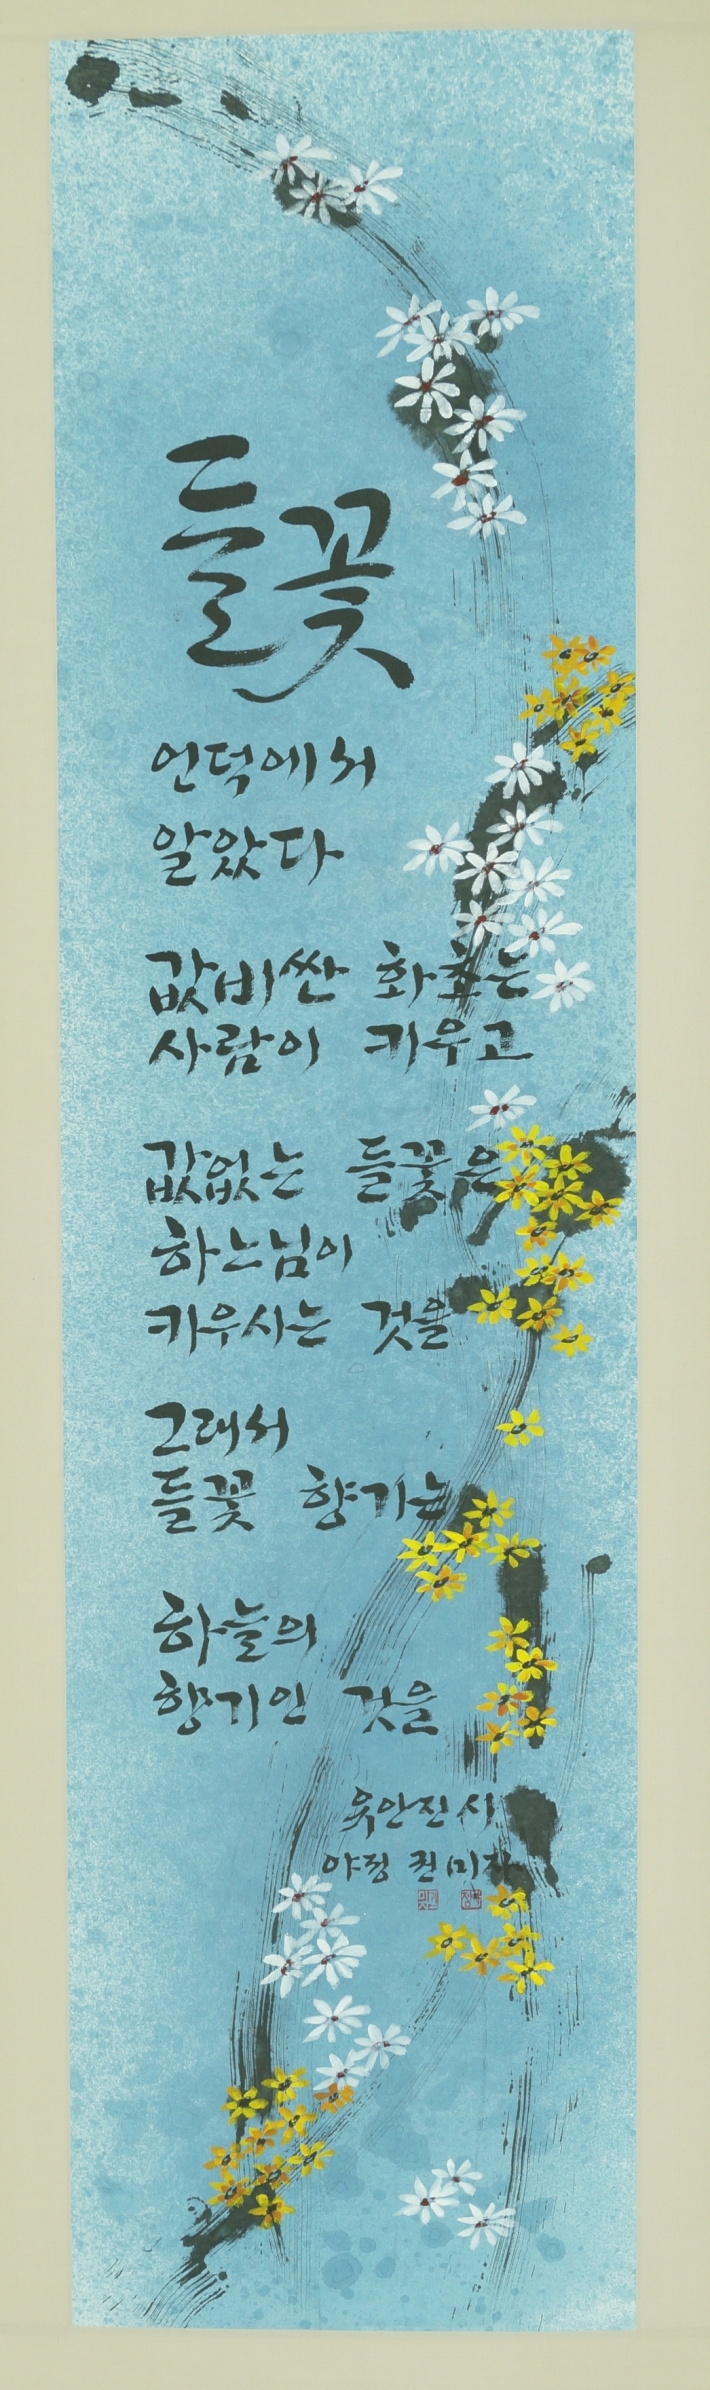 들꽃
언덕에서
알았다
값비싼 화초는
사람이 키우고
값없는 들꽃은
하느님이
키우시는 것을
그래서
들꽃 향기는
하늘의
향기인 것을
유안진 시
야정 권미자